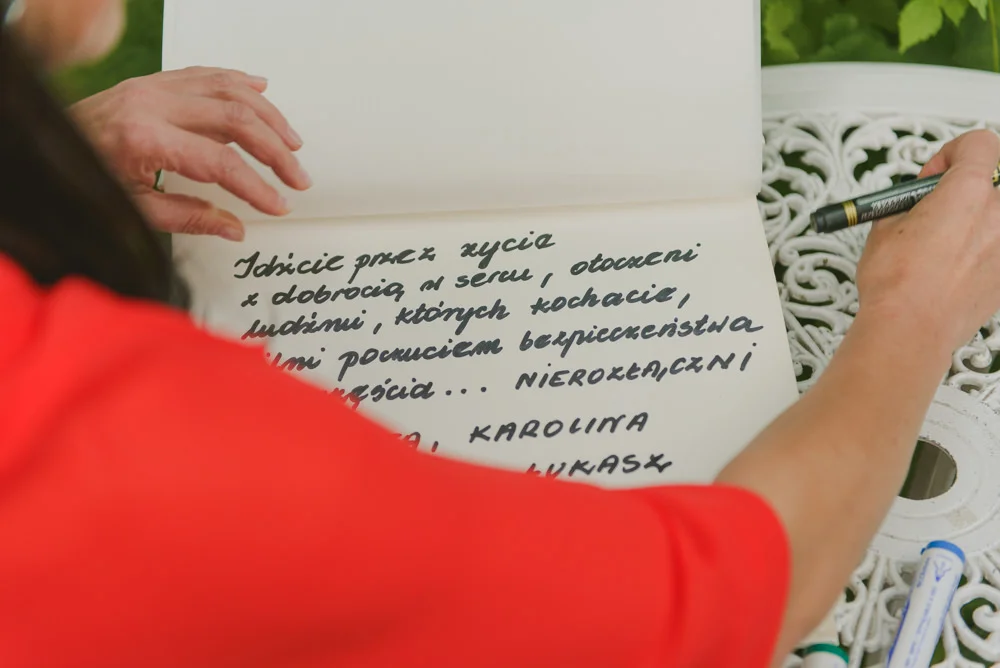 Idźcie przez życia
z dobrocią w sercu, otoczeni
ludźmi, których kochacie,
poczuciem bezpieczeństwa
... NIEROZŁĄCZNI
KAROLINA
ŁUKASZ